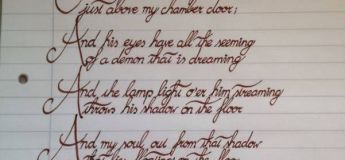 just above my chamber door;
And his eyes have all the seeming
of a demon that is dreaming
And the lamp light o'er him streaming
throws his shadow on the floor
And my soul, out from that shadow
that lies floating on the floor